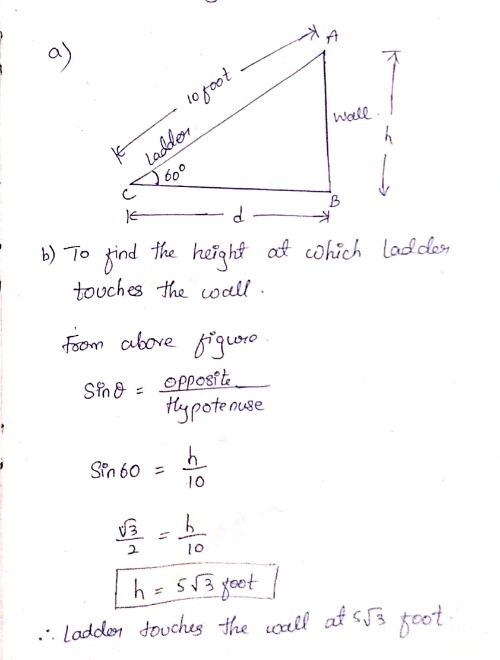 a)
A
10 foot
Ladder
Wall.
h
60°
C
B
d
b) To find the height at which ladder
touches the wall.
From above figure.
Sinθ = opposite / Hypotenuse
Sin60 = h / 10
√3 / 2 = h / 10
h = 5√3 foot
∴ Ladder touches the wall at 5√3 foot.